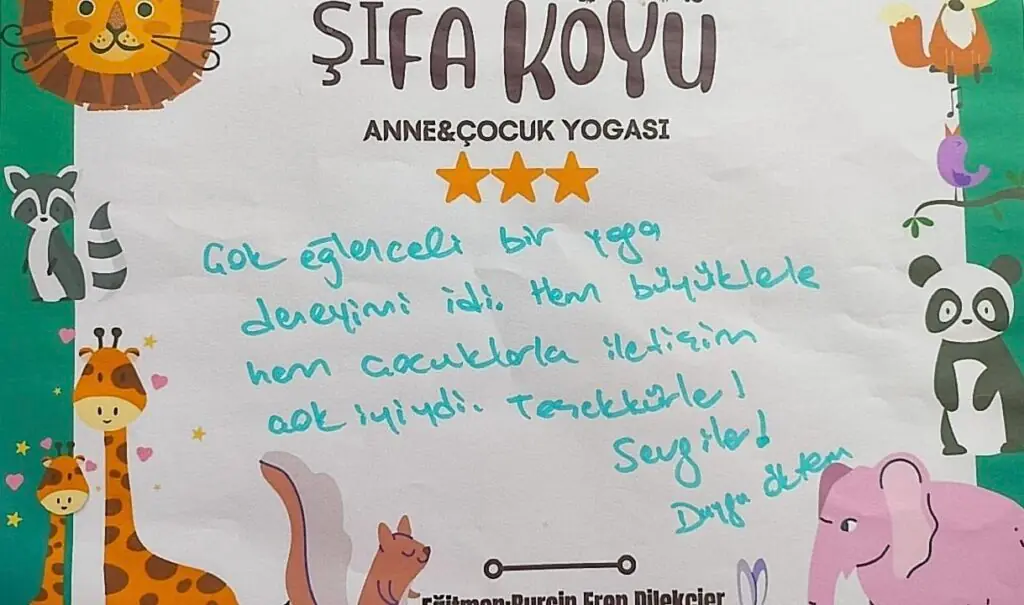 ŞİFA KÖYÜ
ANNE&ÇOCUK YOGASI
Çok eğlenceli bir yoga
deneyimi idi. Hem büyüklerle
hem çocuklarla iletişim
çok iyiydi. Teşekkürler!
Sevgiler!
Duygu Öktem
Eğitmen:Burçin Eren Dilekçier